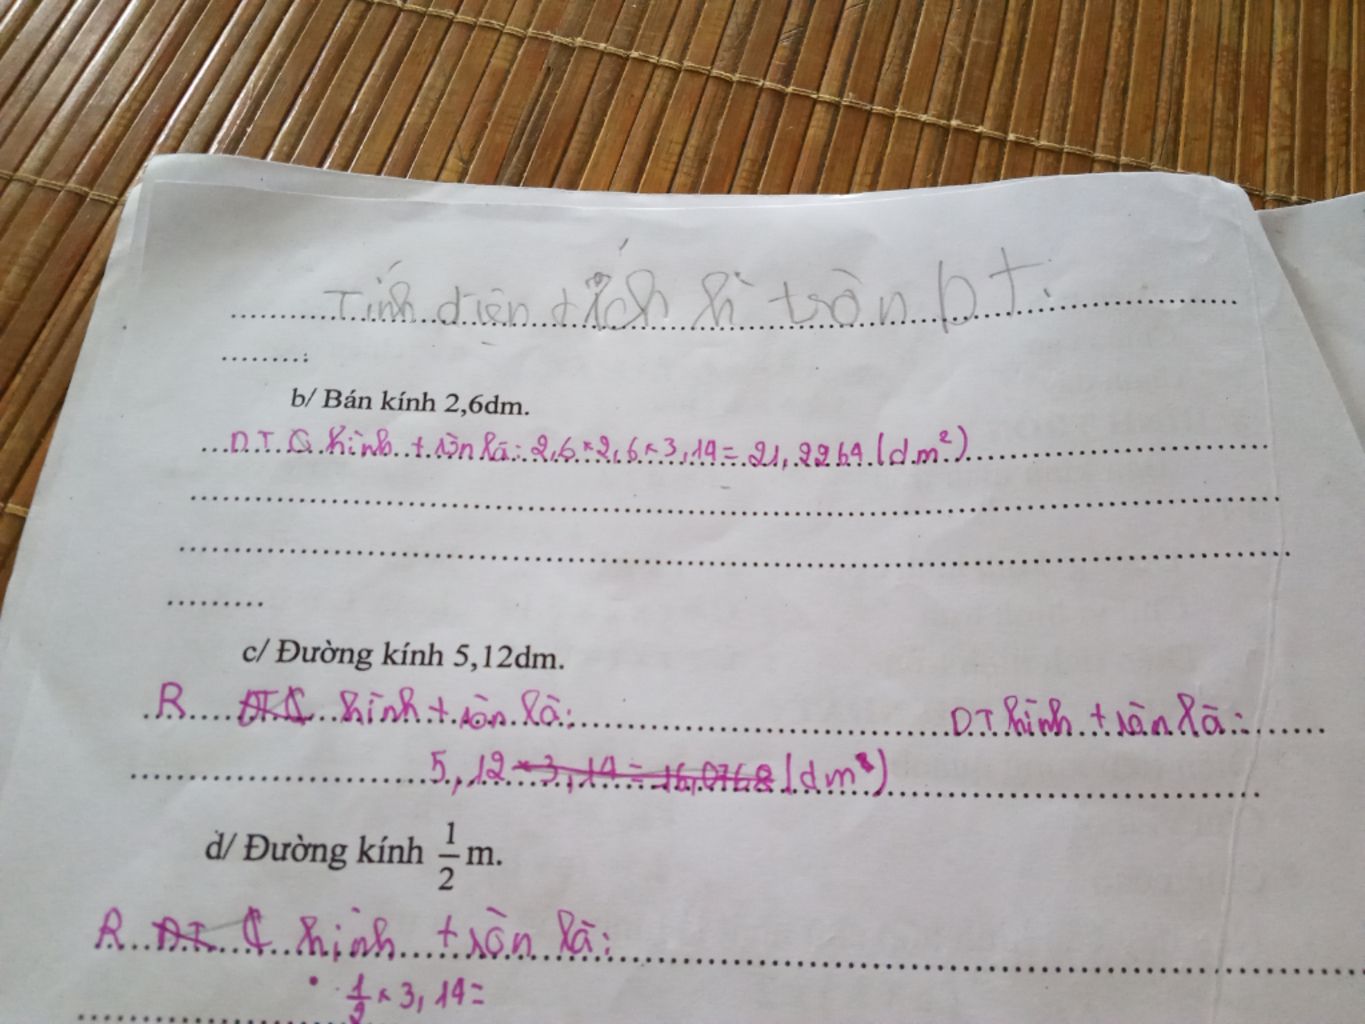 Tính diện tích hì tròn bt:
b/ Bán kính 2,6dm.
D.T.C hình tròn là: 2,6 × 2,6 × 3,14 = 21,2264 (dm²)
c/ Đường kính 5,12dm.
R hình tròn là: DT hình tròn là:
5,12 × 3,14 = 16,0768 (dm²)
d/ Đường kính 1/2 m.
R DT C hình tròn là:
1/2 × 3,14 =